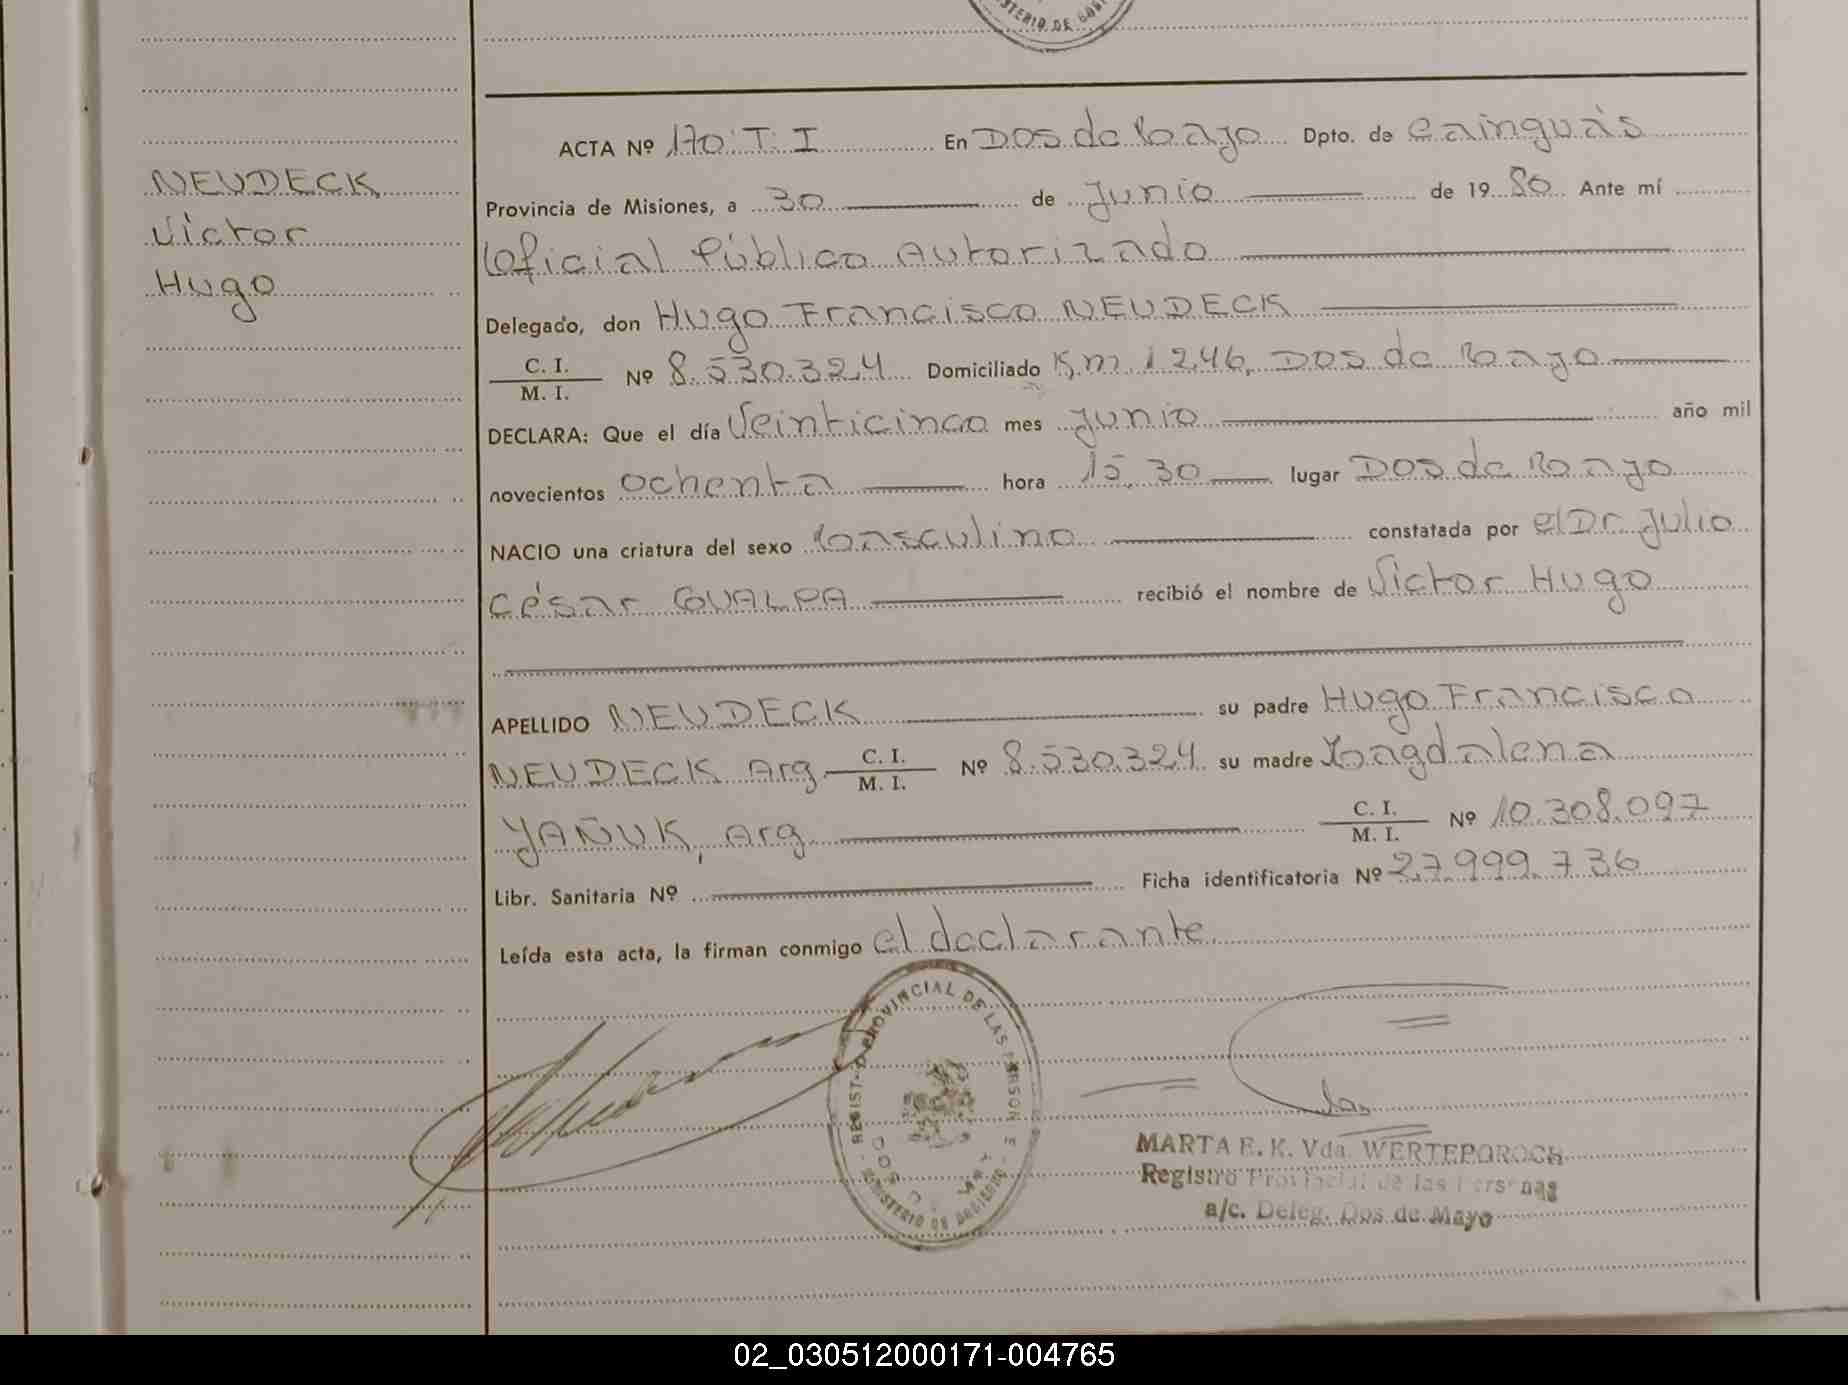 MINISTERIO DE GOBI
ACTA Nº 170 T. I En Dos de Mayo Dpto. de Cainguás
NEUDECK,
Provincia de Misiones, a 30 de Junio de 1980 Ante mí
Víctor
Oficial Público Autorizado
Hugo
Delegado, don Hugo Francisco NEUDECK
C. I.
M. I. Nº 8.530.324 Domiciliado Km. 1246, Dos de Mayo
DECLARA: Que el día Veinticinco mes Junio año mil
novecientos ochenta hora 15,30 lugar Dos de Mayo
NACIO una criatura del sexo Masculino constatada por el Dr. Julio
César GUALPA recibió el nombre de Víctor Hugo
APELLIDO NEUDECK su padre Hugo Francisco
NEUDECK Arg. C. I. M. I. Nº 8.530.324 su madre Magdalena
YAÑUK, Arg. C. I. M. I. Nº 10.308.097
Libr. Sanitaria Nº Ficha identificatoria Nº 27.999.736
Leída esta acta, la firman conmigo el declarante.
REGISTRO PROVINCIAL DE LAS PERSON
MINISTERIO DE GOBIERNO
MARTA E. K. Vda. WERTEPOROCH
Registro Provincial de las Personas
a/c. Deleg. Dos de Mayo
02_030512000171-004765